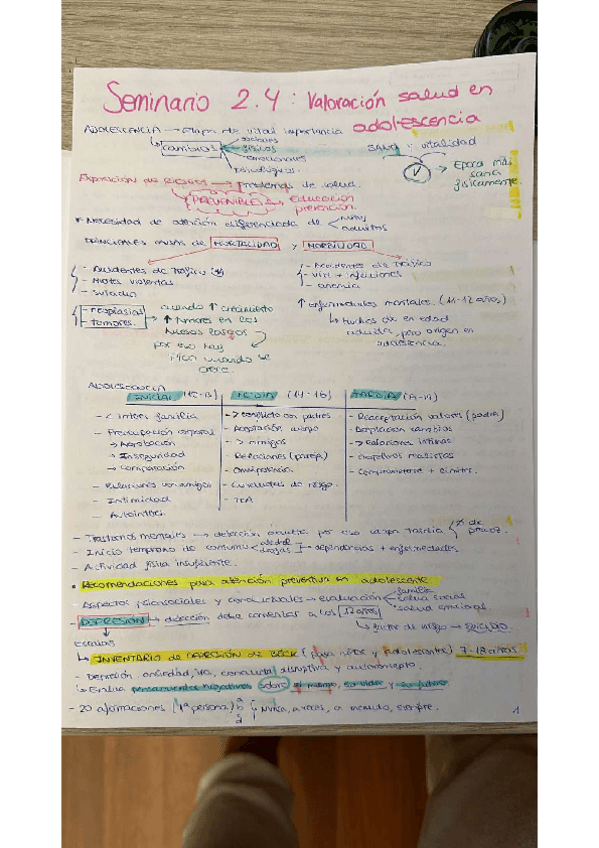 Seminario 2.4: Valoración salud en
adolescencia
ADOLESCENCIA → Etapa de vital importancia
cambios
sociales
físicos
emocionales
psicológicos
SALUD: vitalidad
→ Época más
sana
físicamente.
Exposición de RIESGOS → problemas de salud.
PREVENIBLES educación
prevención
* Necesidad de atención diferenciada de niños
adultos
PRINCIPALES CAUSAS DE MORTALIDAD y MORBILIDAD
- Accidentes de tráfico
- Motes violentas
- Suicidios
- neoplasias
- tumores.
cuando ↑ crecimiento
↑ tumores en los
huesos largos
por eso hay
cuando se
crece.
- Accidentes de tráfico
- VIH + infecciones
- anemia
↑ Enfermedades mentales. (11-12 años)
↳ Muchas son en edad
adulta, pero origen en
adolescencia.
ADOLESCENCIA
INICIAL (12-13) MEDIA (14-16) TARDÍA (17-19)
- < interés familia
- Preocupación corporal
→ Aprobación
→ Inseguridad
→ Comparación
- Relaciones con amigos
- Intimidad
- > conflicto con padres
- Aceptación cuerpo
- > amigos
- Relaciones (pareja)
- Omnipotencia
- Conductas de riesgo.
- TCA
- Reaceptación valores (padres)
- Aceptación cambios
- > relaciones íntimas
- Objetivos realistas
- Comprometerse + límites.
- Trastornos mentales → detección
- Inicio temprano de consumo alcohol
drogas dependencias + enfermedades.
- Actividad física insuficiente.
• Recomendaciones para atención preventiva en adolescente.
Aspectos psicosociales y conductuales → evaluación familia
salud social
salud emocional
- DEPRESIÓN → detección debe comenzar a los 12 años
↳ factor de riesgo → SUICIDIO.
Escalas
↳ INVENTARIO de DEPRESIÓN DE BECK (para niños y adolescentes) 7-18 años
- Depresión, ansiedad, ira, conducta disruptiva y autoconcepto.
↳ Evalúa pensamientos negativos sobre sí mismo, su vida y su futuro
- 20 afirmaciones (1ª persona) Nunca, a veces, a menudo, siempre.
1